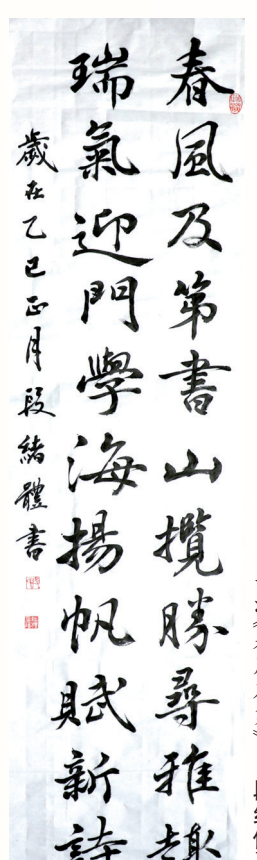 春風及第書山攬勝尋雅趣
瑞氣迎門學海揚帆賦新詩
歲在乙巳正月段緒體書